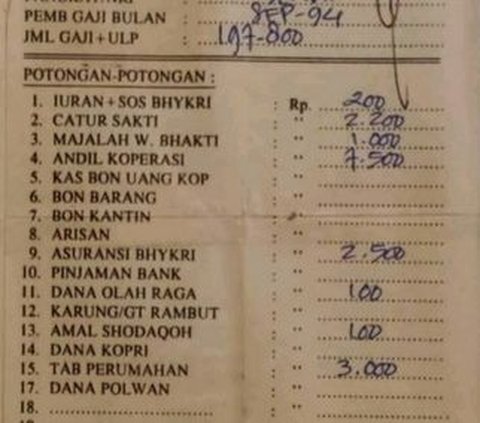 PEMB GAJI BULAN : SEP-94
JML GAJI + ULP : 197-800
POTONGAN-POTONGAN :
1. IURAN + SOS BHYKRI : Rp. 200
2. CATUR SAKTI : " 2.200
3. MAJALAH W. BHAKTI : " 1.000
4. ANDIL KOPERASI : " 7.500
5. KAS BON UANG KOP : "
6. BON BARANG : "
7. BON KANTIN : "
8. ARISAN : "
9. ASURANSI BHYKRI : " 2.500
10. PINJAMAN BANK : "
11. DANA OLAH RAGA : " 100
12. KARUNG/GT RAMBUT : "
13. AMAL SHODAQOH : " 100
14. DANA KOPRI : "
15. TAB PERUMAHAN : " 3.000
17. DANA POLWAN : "
18. : "